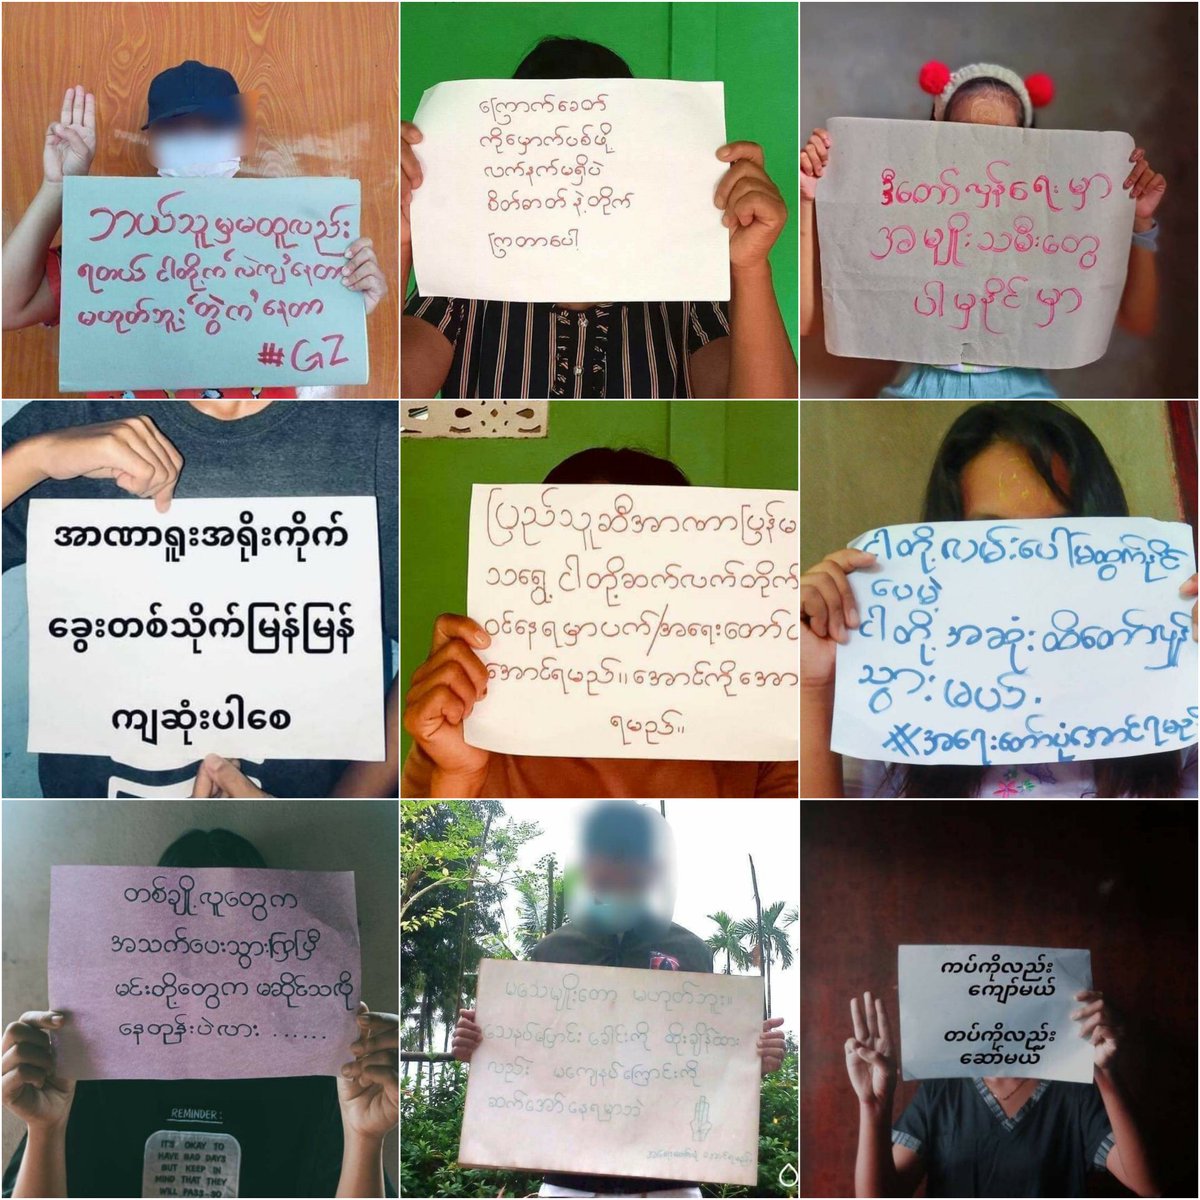 ဘယ်သူမှမထူလည်း
ရတယ် ငါတို့က 'လဲကျ' နေတာ
မဟုတ်ဘူး 'တွဲက' နေတာ
#GZ
ကြောက်ခေတ်
ကိုမှောက်ပစ်ဖို့
လက်နက်မရှိပဲ
စိတ်ဓာတ်နဲ့တိုက်
ကြတာပေါ့
ဒီတော်လှန်ရေးမှာ
အမျိုးသမီးတွေ
ပါမှနိုင်မှာ
အာဏာရူးအရိုးကိုက်
ခွေးတစ်သိုက်မြန်မြန်
ကျဆုံးပါစေ
ပြည်သူ့ဆီအာဏာပြန်မ
သရွေ့ ငါတို့ဆက်လက်တိုက်
ဝင်နေရမှာပဲ/အရေးတော်ပ
အောင်ရမည်။အောင်ကိုအော
ရမည်။
ငါတို့လမ်းပေါ်မထွက်နိုင်
ပေမဲ့
ငါတို့အဆုံးထိတော်လှန်
သွားမယ်.
#အရေးတော်ပုံအောင်ရမည်
တစ်ချို့လူတွေက
အသက်ပေးသွားကြပြီ
မင်းတို့တွေက မဆိုင်သလို
နေတုန်းပဲလား ......
REMINDER:
IT'S OKAY TO
HAVE BAD DAYS
BUT KEEP IN
MIND THAT THEY
WILL PASS-SO
မသေမျိုးတော့ မဟုတ်ဘူး။
သေနတ်ပြောင်း ခေါင်းကို ထိုးချိန်ထား
လည်း မကျေနပ်ကြောင်းကို
ဆက်အော်နေရမှာဘဲ
အရေးတော်ပုံ အောင်ရမည်
ကပ်ကိုလည်း
ကျော်မယ်
တပ်ကိုလည်း
ဆော်မယ်